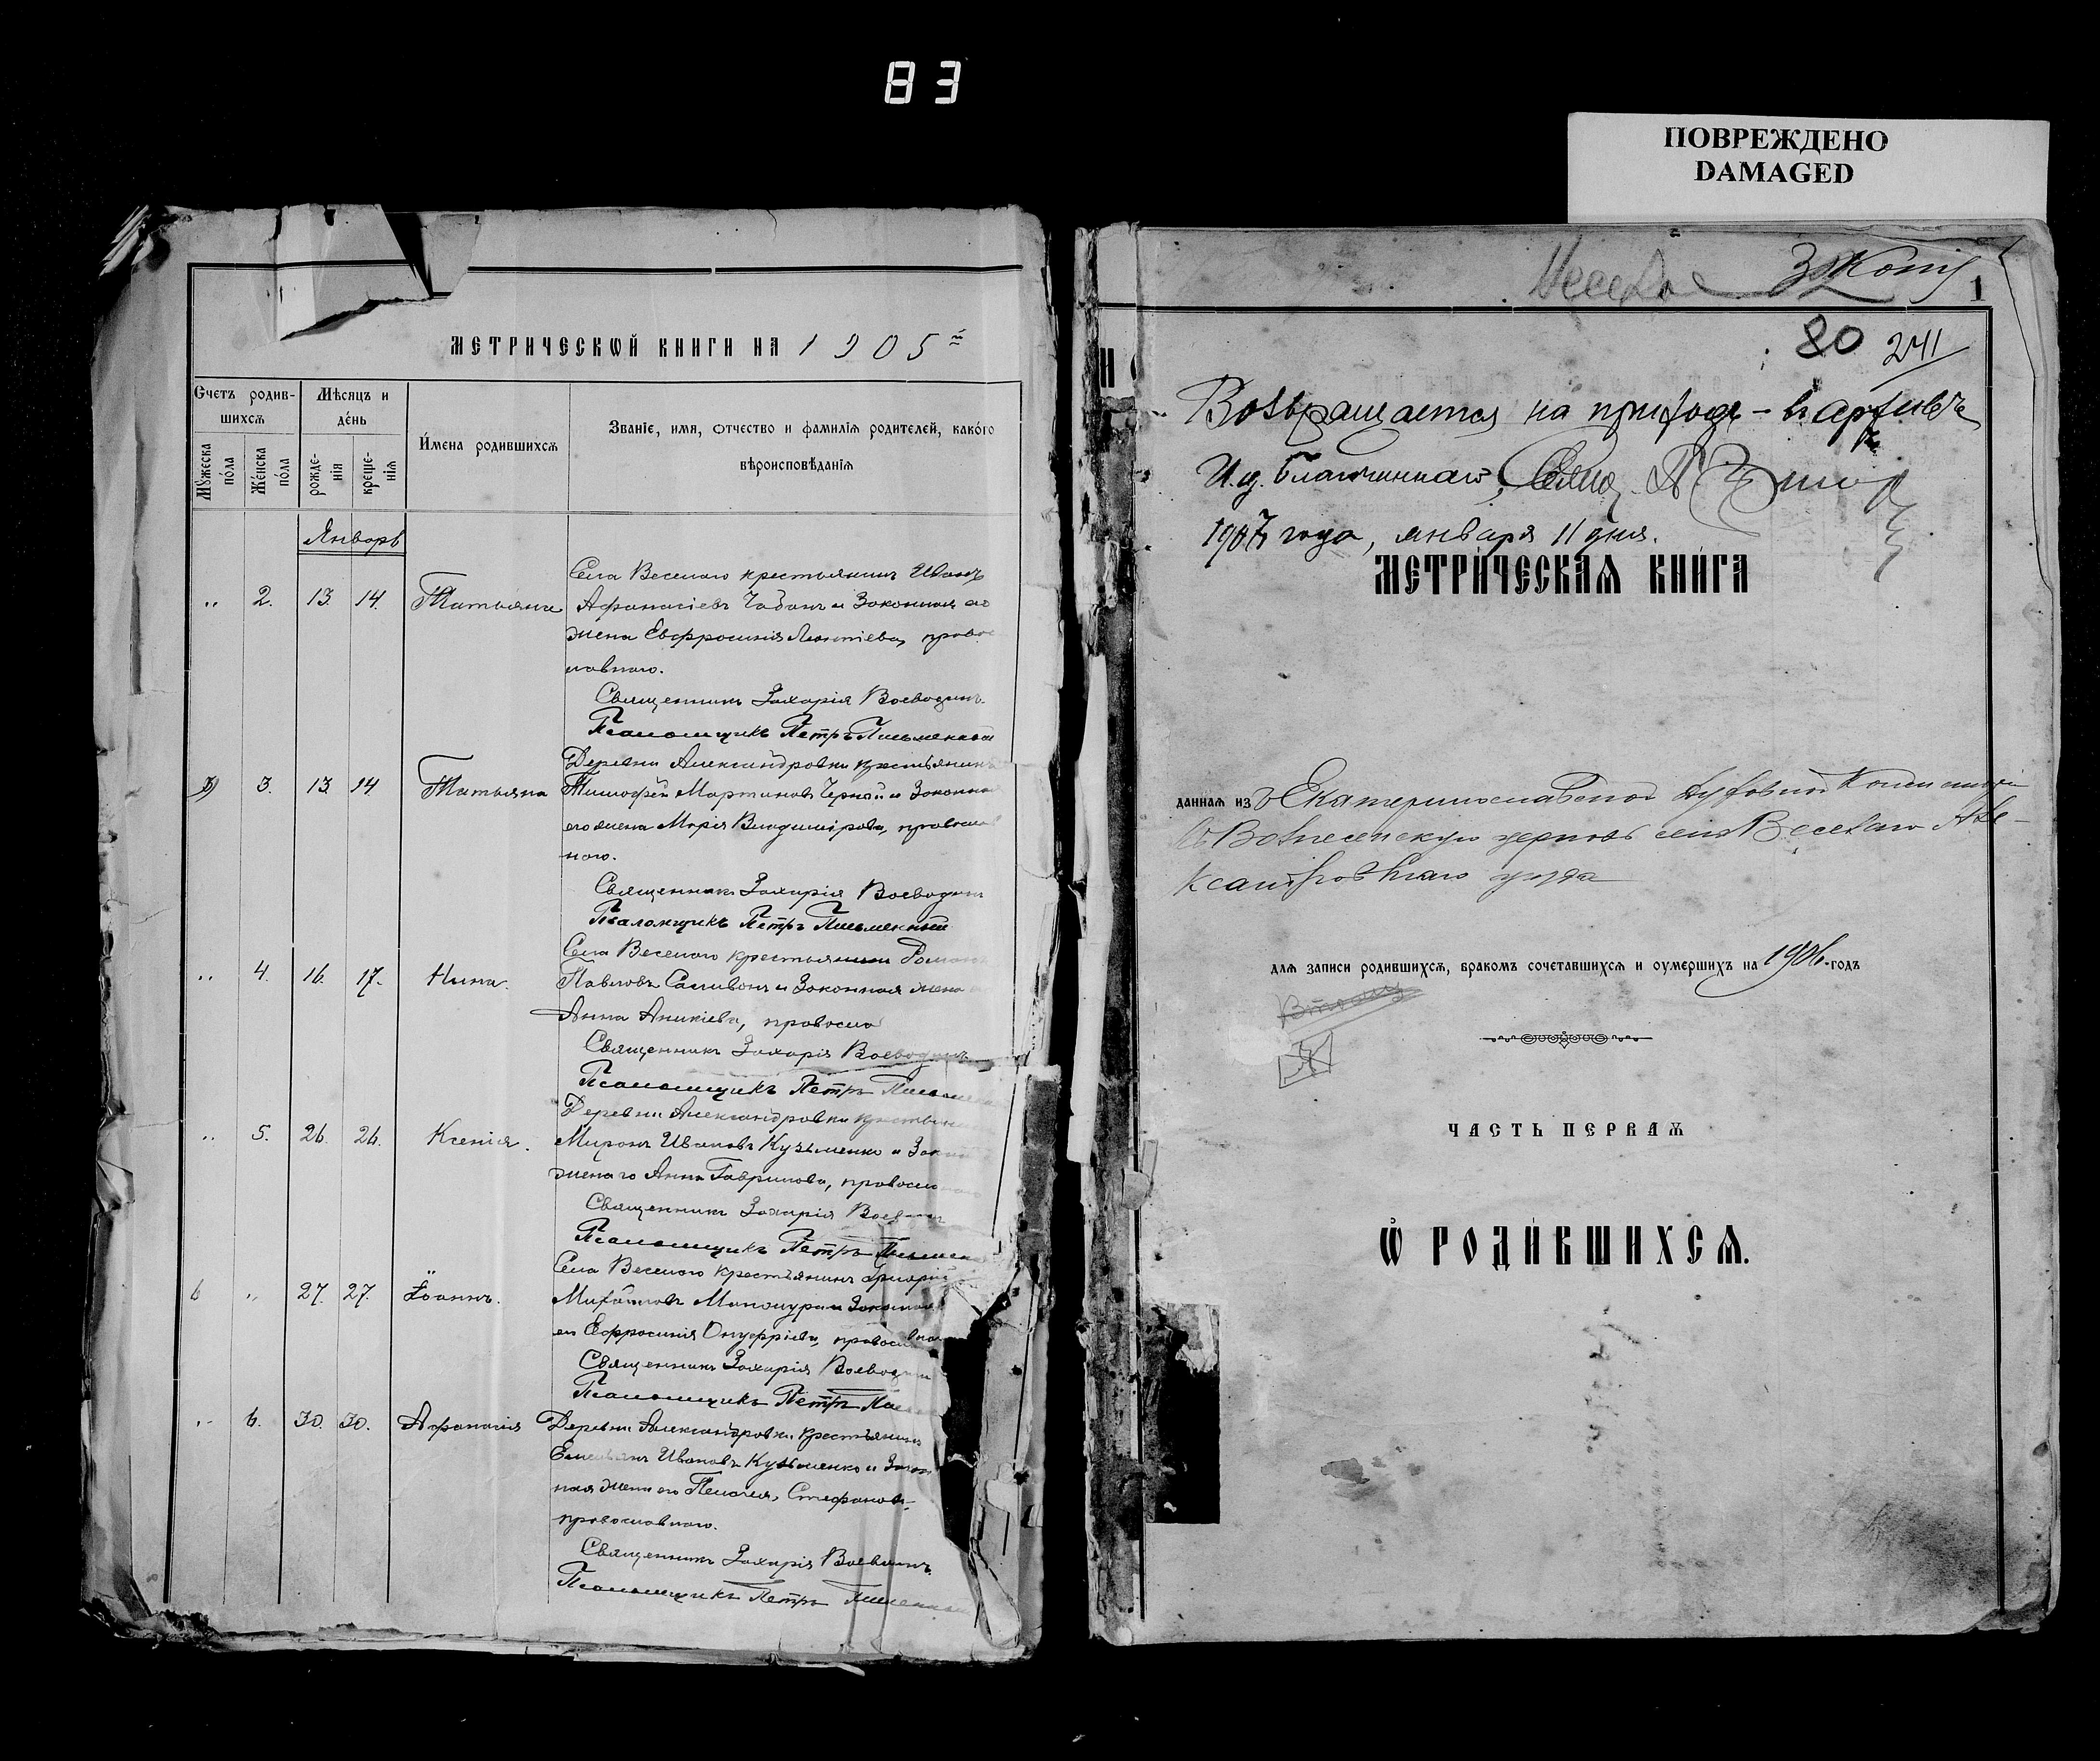 83
ПОВРЕЖДЕНО
DAMAGED
МЕТРИЧЕСКѠЙ КНИГИ НА 1905й
Счетъ родив-
шихсѧ
Мѣсяцъ и
де́нь
И́мена родившихсѧ
Званіе, имя, отчество и фамилія родителей, како́го
вѣроисповѣданія
Мужеска по́ла
Же́нска по́ла
рожде-
нія
креще-
нія
Январь
„ 2. 13. 14. Татьяна
Села Веселаго крестьянинъ Иванъ
Афанасіевъ Чабанъ и Законная его
жена Евфросинія Леонтіева, право
славнаго.
Священникъ Захарія Воеводинъ.
Псаломщикъ Петръ Письменный
3. 13. 14 Татьяна
Деревни Александровки крестьянинъ
Тимофей Мартиновъ Черный и Законна
его жена Марія Владимірова, правосла
наго.
Священникъ Захарія Воеводинъ
Псаломщикъ Петръ Письменный
„ 4. 16. 17. Нина.
Села Веселаго крестьянинъ Романъ
Павловъ Саливонъ и Законная жена
Анна Аникіева, правосла
Священникъ Захарія Воеводинъ
Псаломщикъ Петръ Письмен
„ 5. 26. 26. Ксенія.
Деревни Александровки крестьян
Миронъ Ивановъ Кузьменко и Закон
жена го Анна Гаврилова, правосла
Священникъ Захарія Воев
Псаломщикъ Петръ Письмен
6 „ 27. 27. Іоаннъ.
Села Веселаго крестьянинъ Григорій
Михайловъ и Законная
ея Ефросинія Онуфріева, правосл
Священникъ Захарія Воеводин
Псаломщикъ Петръ Пис
„ 6. 30. 30. Афанасія
Деревни Александровки крестьянинъ
Емельянъ Ивановъ Кузьменко и Закон
ная жена его Пелагія, Стефанов
православнаго.
Священникъ Захарія Воеводинъ.
Псаломщикъ Петръ Письменный
Веселое
1
80 241
Возвращается на приходъ – въ архивъ
И. д. благочиннаго, Свящ.
1907 года, января 11 дня.
МЕТРИ́ЧЕСКАѦ КНИ́ГА
даннаѧ изъ Екатеринославской Духовной Консисторіи
въ Вознесенскую церковь села Веселаго Але-
ксандровскаго уѣзда
длѧ записи родившихсѧ, бракомъ сочетавшихсѧ и оумершихъ на 1906 годъ
ЧАСТЬ ПЕРВАѦ
Ѡ РОДИ́ВШИХСѦ.